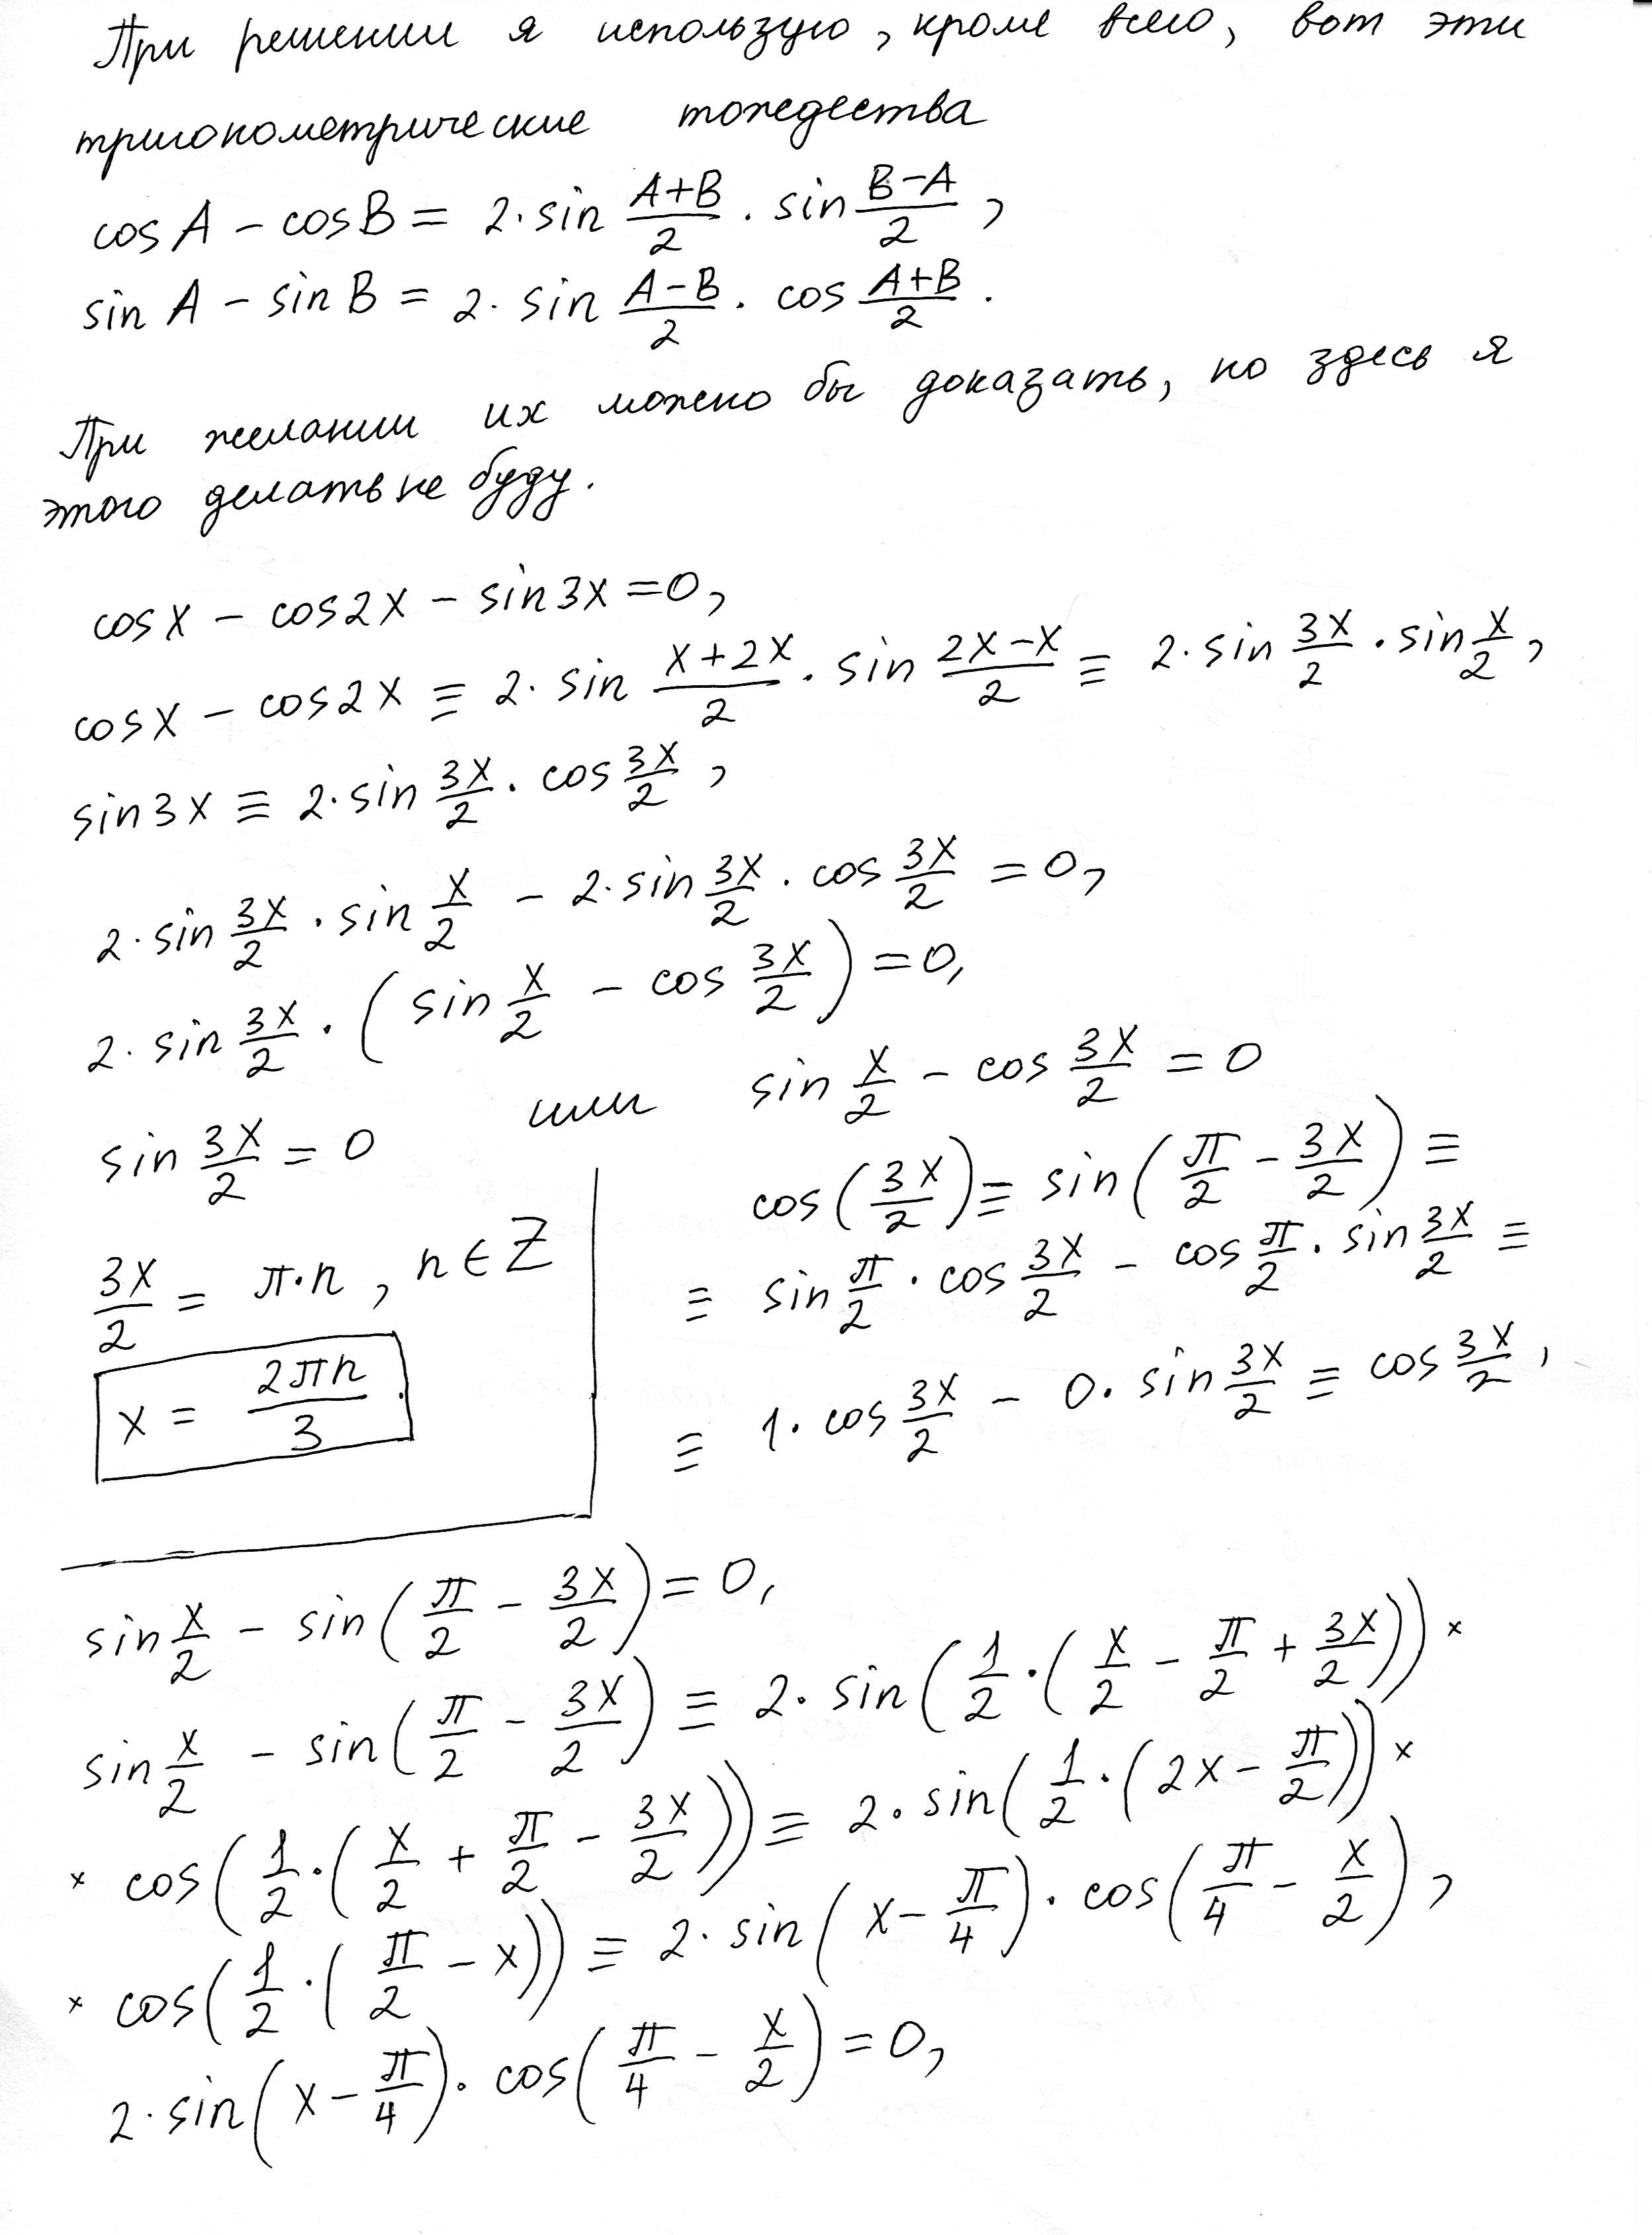 При решении я использую, кроме всего, вот эти
тригонометрические тождества
cos A − cos B = 2·sin (A+B)/2 · sin (B−A)/2,
sin A − sin B = 2·sin (A−B)/2 · cos (A+B)/2.
При желании их можно бы доказать, но здесь я
этого делать не буду.
cos x − cos 2x − sin 3x = 0,
cos x − cos 2x ≡ 2·sin (x+2x)/2 · sin (2x−x)/2 ≡ 2·sin 3x/2 · sin x/2,
sin 3x ≡ 2·sin 3x/2 · cos 3x/2,
2·sin 3x/2 · sin x/2 − 2·sin 3x/2 · cos 3x/2 = 0,
2·sin 3x/2 · (sin x/2 − cos 3x/2) = 0,
sin 3x/2 = 0 или sin x/2 − cos 3x/2 = 0
3x/2 = π·n, n ∈ Z
x = 2πn/3.
cos(3x/2) ≡ sin(π/2 − 3x/2) ≡
≡ sin π/2 · cos 3x/2 − cos π/2 · sin 3x/2 ≡
≡ 1·cos 3x/2 − 0·sin 3x/2 ≡ cos 3x/2,
sin x/2 − sin(π/2 − 3x/2) = 0,
sin x/2 − sin(π/2 − 3x/2) ≡ 2·sin(1/2·(x/2 − π/2 + 3x/2)) ×
× cos(1/2·(x/2 + π/2 − 3x/2)) ≡ 2·sin(1/2·(2x − π/2)) ×
× cos(1/2·(π/2 − x)) ≡ 2·sin(x − π/4) · cos(π/4 − x/2),
2·sin(x − π/4) · cos(π/4 − x/2) = 0,